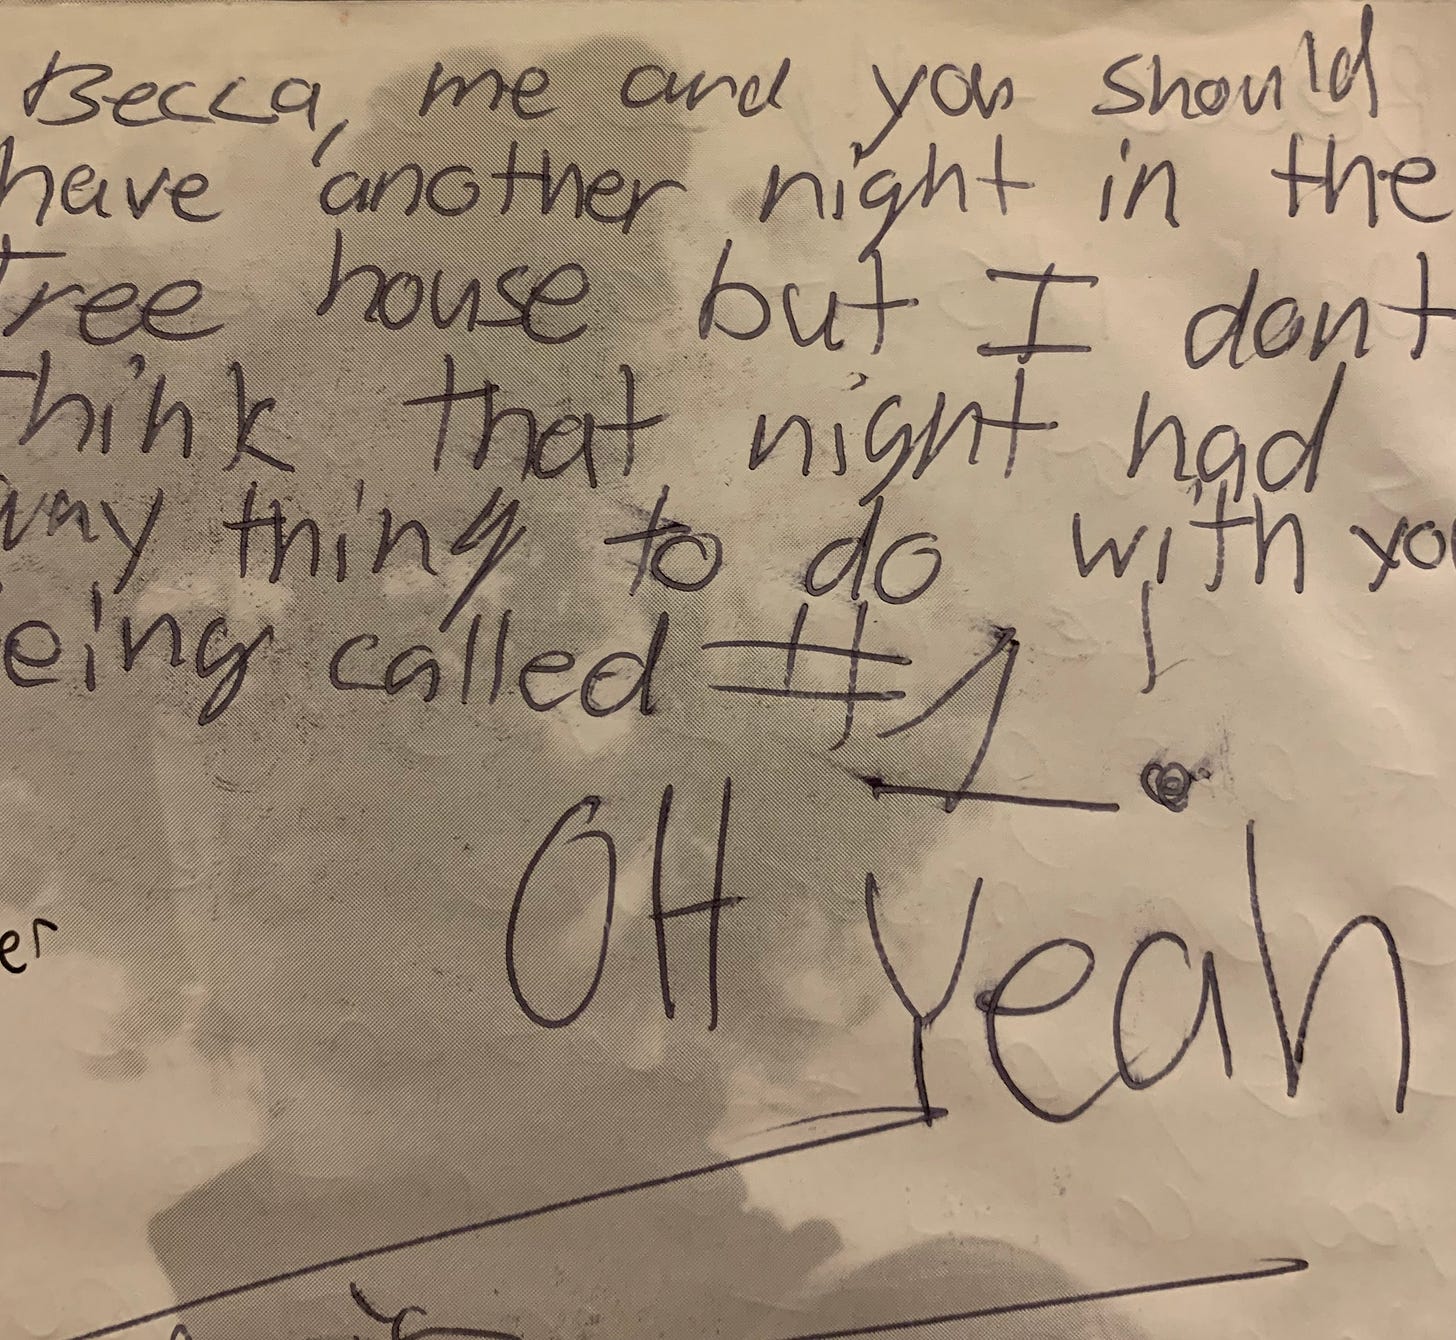 Becca, me and you should
have another night in the
tree house but I dont
think that night had
any thing to do with you
being called #1!
OH Yeah
er